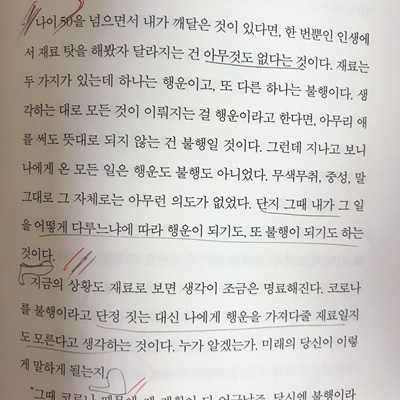 나이 50을 넘으면서 내가 깨달은 것이 있다면, 한 번뿐인 인생에
서 재료 탓을 해봤자 달라지는 건 아무것도 없다는 것이다. 재료는
두 가지가 있는데 하나는 행운이고, 또 다른 하나는 불행이다. 생
각하는 대로 모든 것이 이뤄지는 걸 행운이라고 한다면, 아무리 애
를 써도 뜻대로 되지 않는 건 불행일 것이다. 그런데 지나고 보니
나에게 온 모든 일은 행운도 불행도 아니었다. 무색무취, 중성, 말
그대로 그 자체로는 아무런 의도가 없었다. 단지 그때 내가 그 일
을 어떻게 다루느냐에 따라 행운이 되기도, 또 불행이 되기도 하는
것이다.
지금의 상황도 재료로 보면 생각이 조금은 명료해진다. 코로나
를 불행이라고 단정 짓는 대신 나에게 행운을 가져다줄 재료일지
도 모른다고 생각하는 것이다. 누가 알겠는가. 미래의 당신이 이렇
게 말하게 될는지.
"그때 코로나 때문에 내 계획이 다 어긋났죠. 당시엔 불행이라